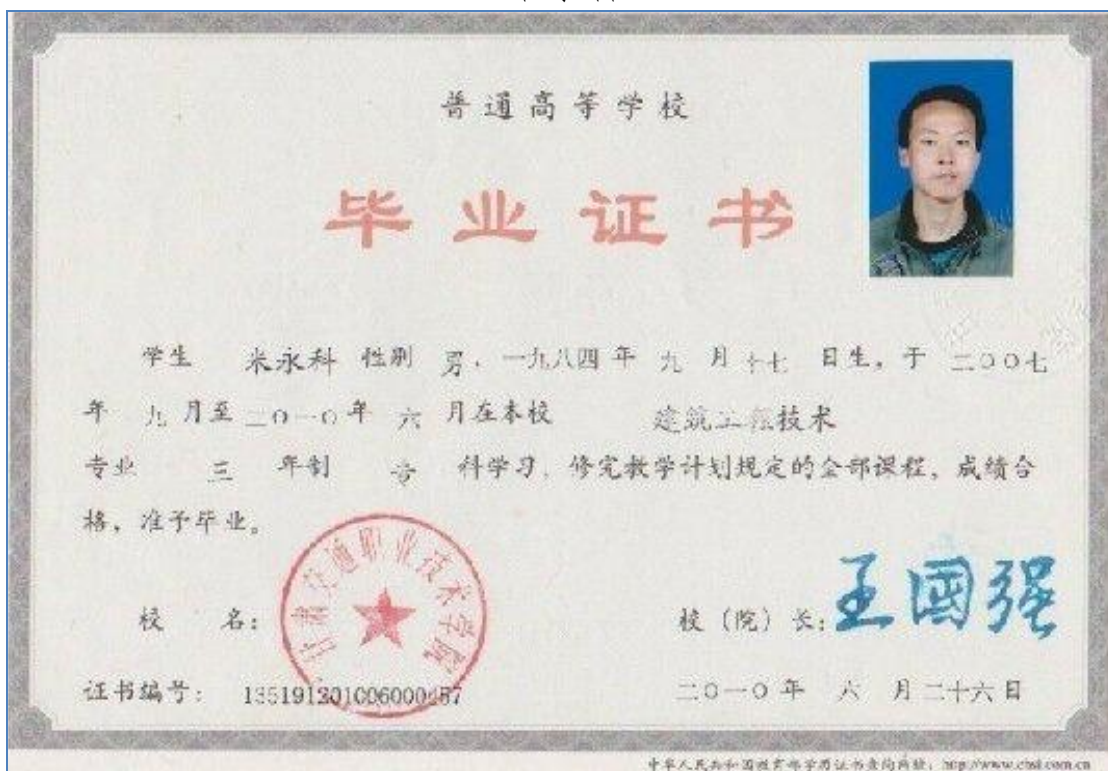 普通高等学校
毕业证书
学生 米永科 性别 男，一九八四年 九 月十七 日生，于 二〇〇七
年 九 月至二〇一〇年 六 月在本校 建筑工程技术
专业 三 年制 专 科学习，修完教学计划规定的全部课程，成绩合
格，准予毕业。
甘肃交通职业技术学院
校 名：
校（院）长：王國强
证书编号： 135191201006000487
二〇一〇年 六 月二十六日
中华人民共和国教育部学历证书查询网址：http://www.chsi.com.cn